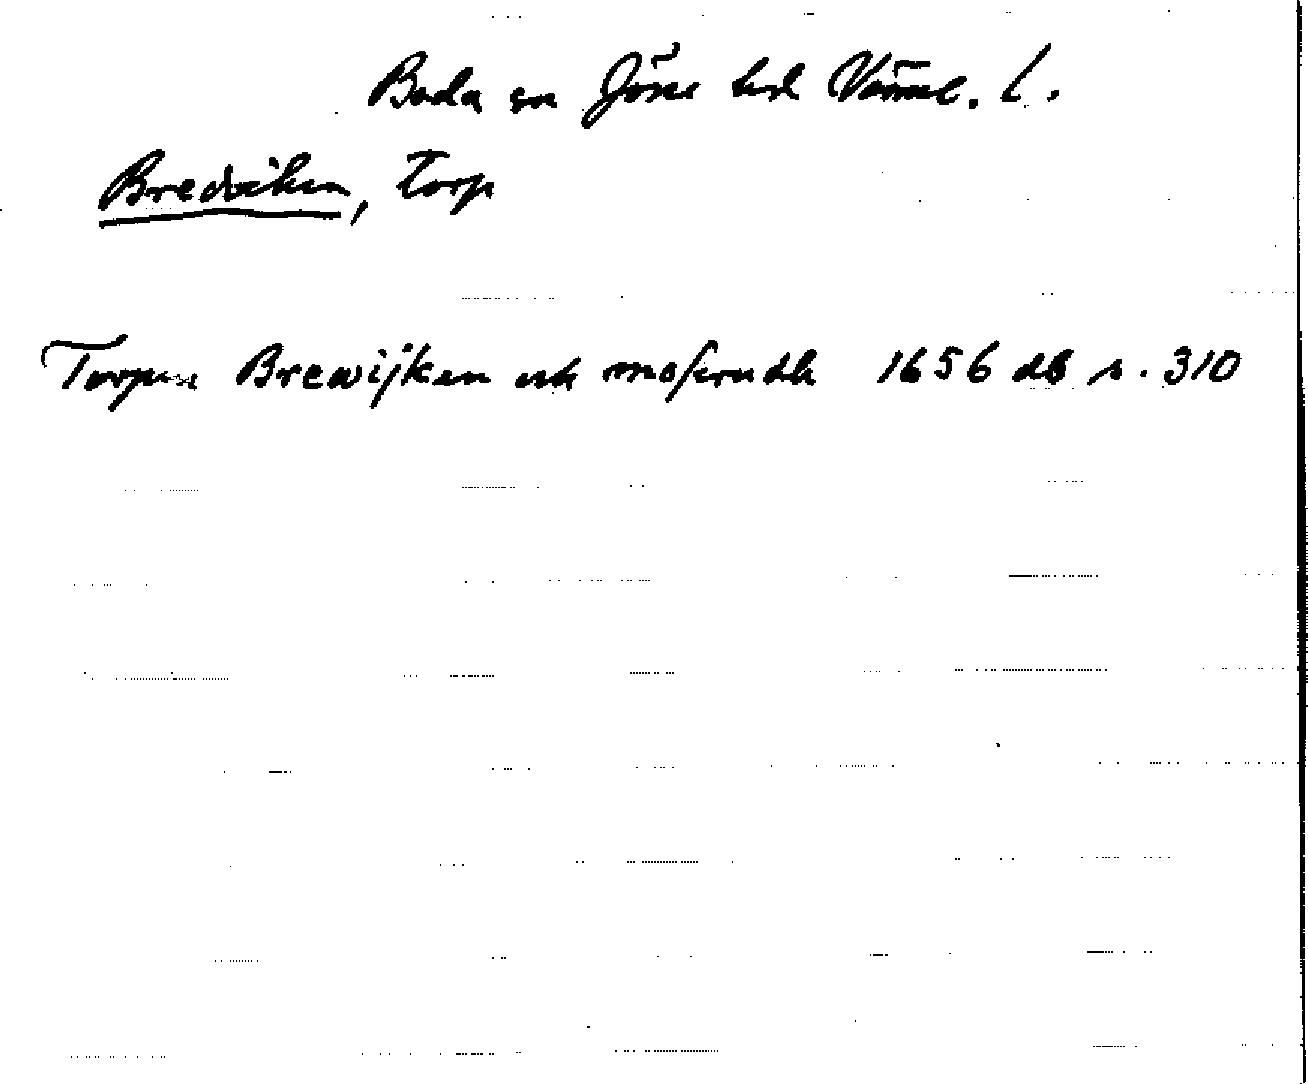 Boda sn Jösse hd Värml. l.
Bredviken, Torp
Torpen Brewijken och mosserudh 1656 db s. 310